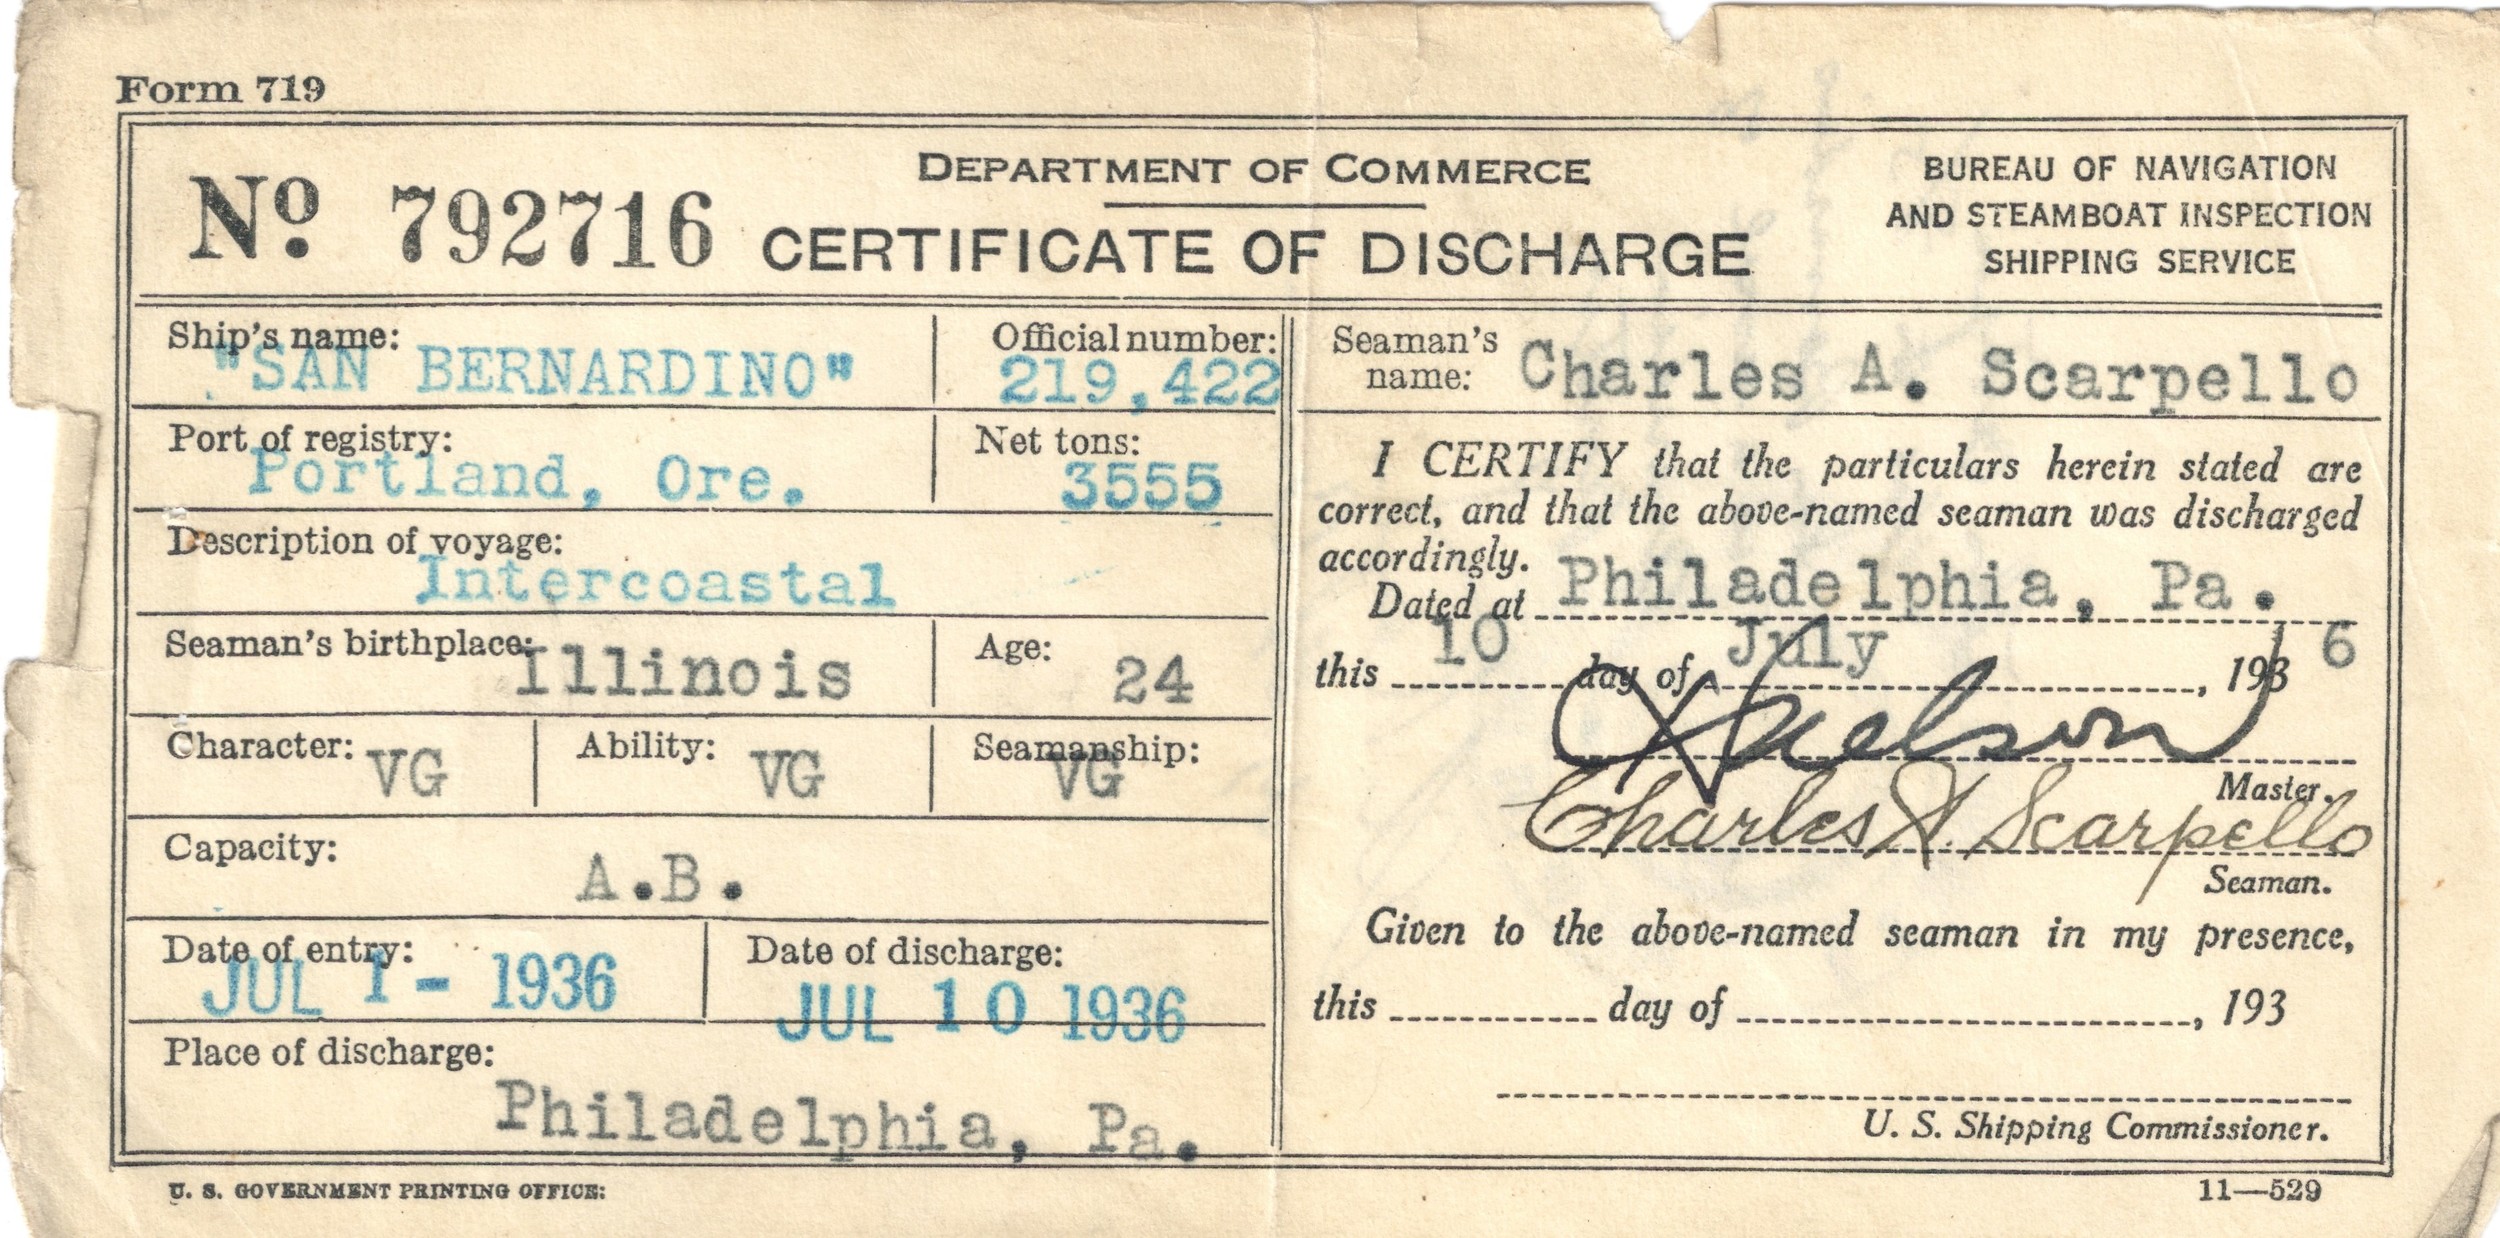 Form 719
No. 792716
DEPARTMENT OF COMMERCE
CERTIFICATE OF DISCHARGE
BUREAU OF NAVIGATION
AND STEAMBOAT INSPECTION
SHIPPING SERVICE
Ship's name: "SAN BERNARDINO"
Official number: 219,422
Port of registry: Portland, Ore.
Net tons: 3555
Description of voyage: Intercoastal
Seaman's birthplace: Illinois
Age: 24
Character: VG
Ability: VG
Seamanship: VG
Capacity: A.B.
Date of entry: JUL 1 - 1936
Date of discharge: JUL 10 1936
Place of discharge: Philadelphia, Pa.
Seaman's name: Charles A. Scarpello
I CERTIFY that the particulars herein stated are
correct, and that the above-named seaman was discharged
accordingly.
Dated at Philadelphia, Pa.
this 10 day of July, 193 6
Nelson
Master.
Charles A. Scarpello
Seaman.
Given to the above-named seaman in my presence,
this day of , 193
U. S. Shipping Commissioner.
U. S. GOVERNMENT PRINTING OFFICE:
11—529